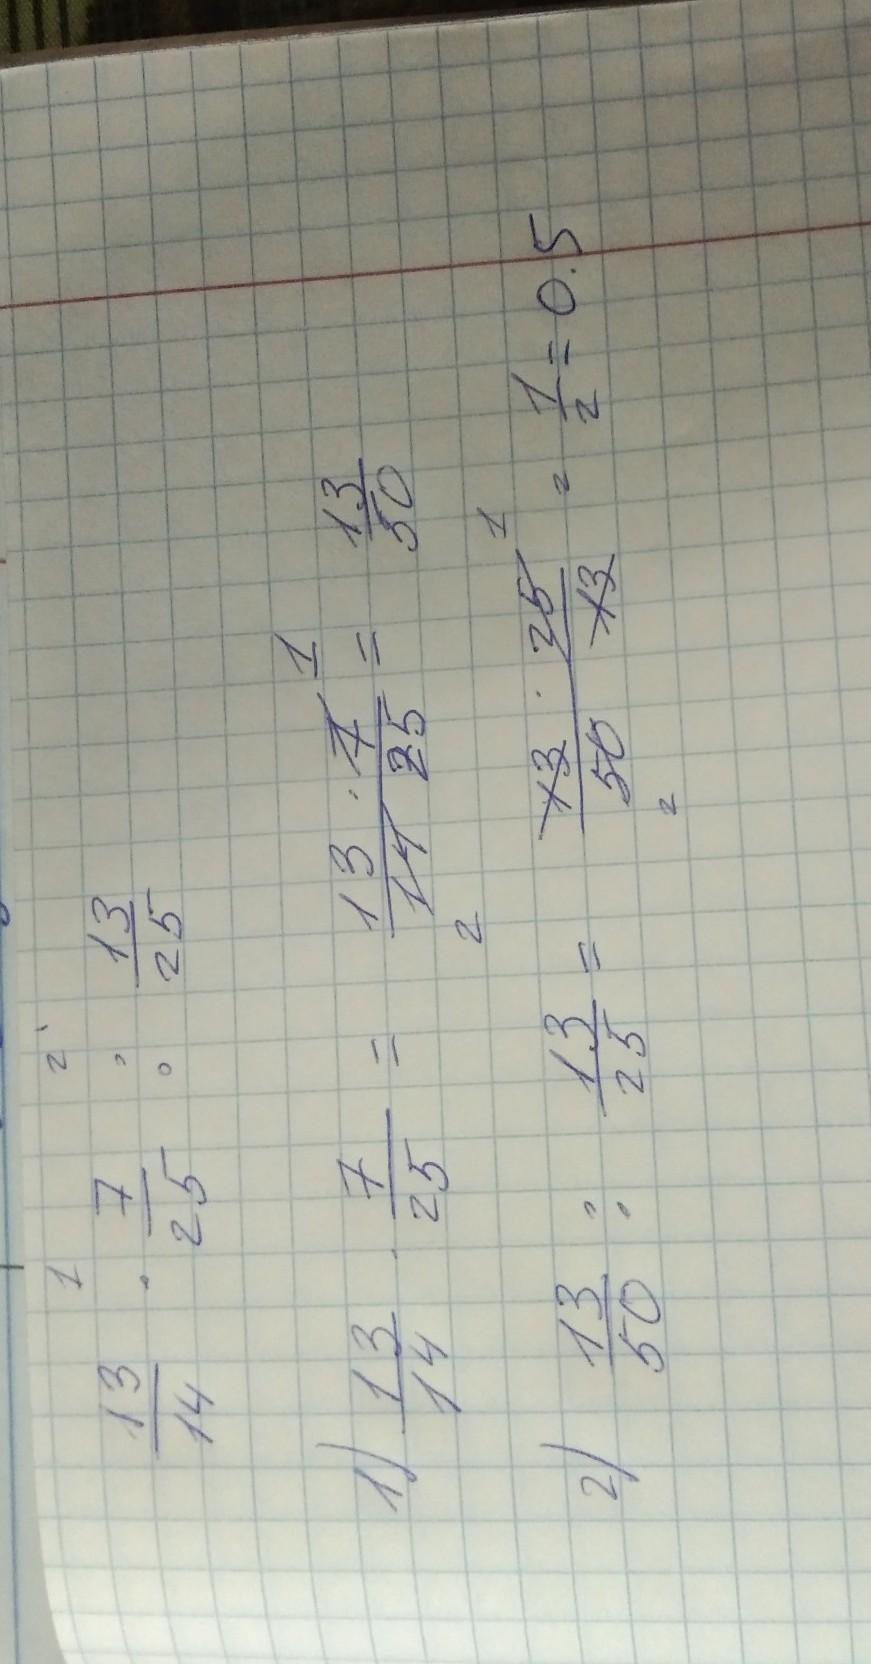 1 2
13/14 · 7/25 : 13/25
1) 13/14 · 7/25 = 13 · 7/14 25 = 13/50
1
2
2) 13/50 : 13/25 = 13 · 25/50 13 = 1/2 = 0.5
1
2